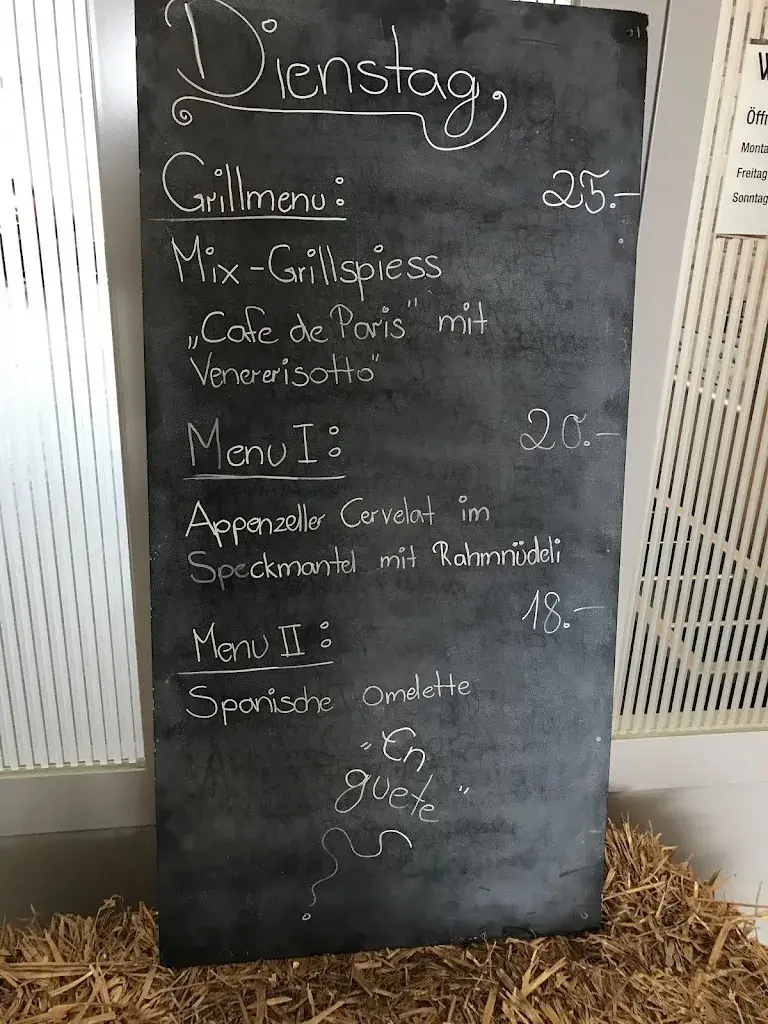 Dienstag
Grillmenu: 25.-
Mix-Grillspiess
„Cafe de Paris" mit
Venererisotto"
Menu I: 20.-
Appenzeller Cervelat im
Speckmantel mit Rahmnüdeli
18.-
Menu II:
Spanische Omelette
"En
guete"
Öff
Monta
Freitag
Sonntag